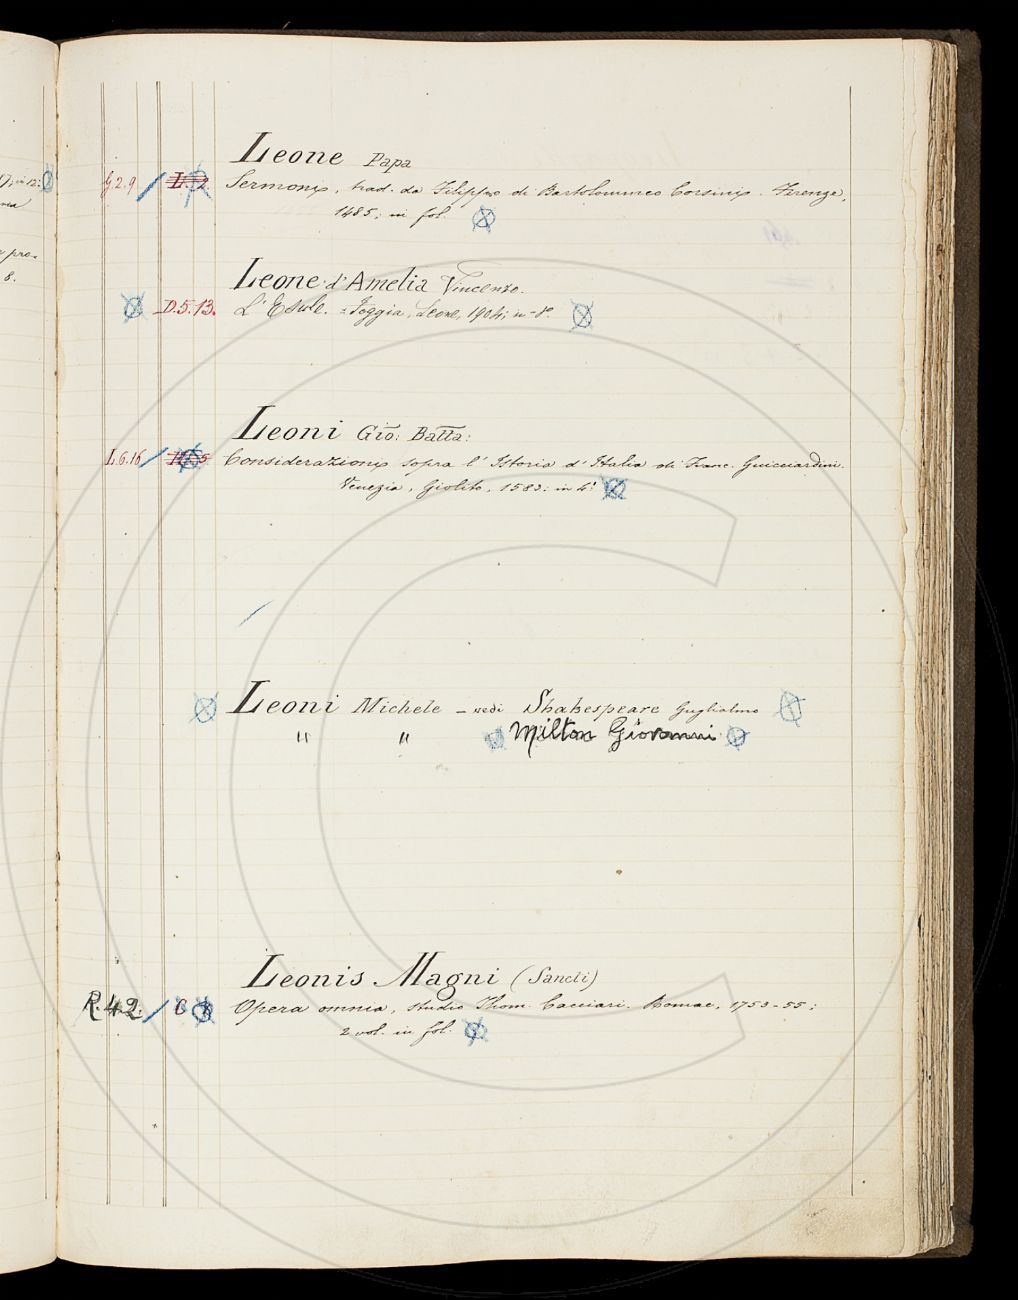 Leone Papa
G.2.9.
Sermoni, trad. da Filippo di Bartolommeo Corsini. Firenze,
1485; in fol.
Leone d'Amelia Vincenzo.
D.5.13. L'Esule. Foggia, Leone, 1904; in-8º.
Leoni Gio: Batta:
L.6.16 Considerazioni sopra l'Istoria d'Italia di Franc. Guicciardini.
Venezia, Giolito, 1583; in 4º
Leoni Michele – vedi Shakespeare Guglielmo
" " Milton Giovanni
Leonis Magni (Sancti)
R.4.2. Opera omnia, studio Thom. Cacciari. Romae, 1753-55;
2 vol. in fol.